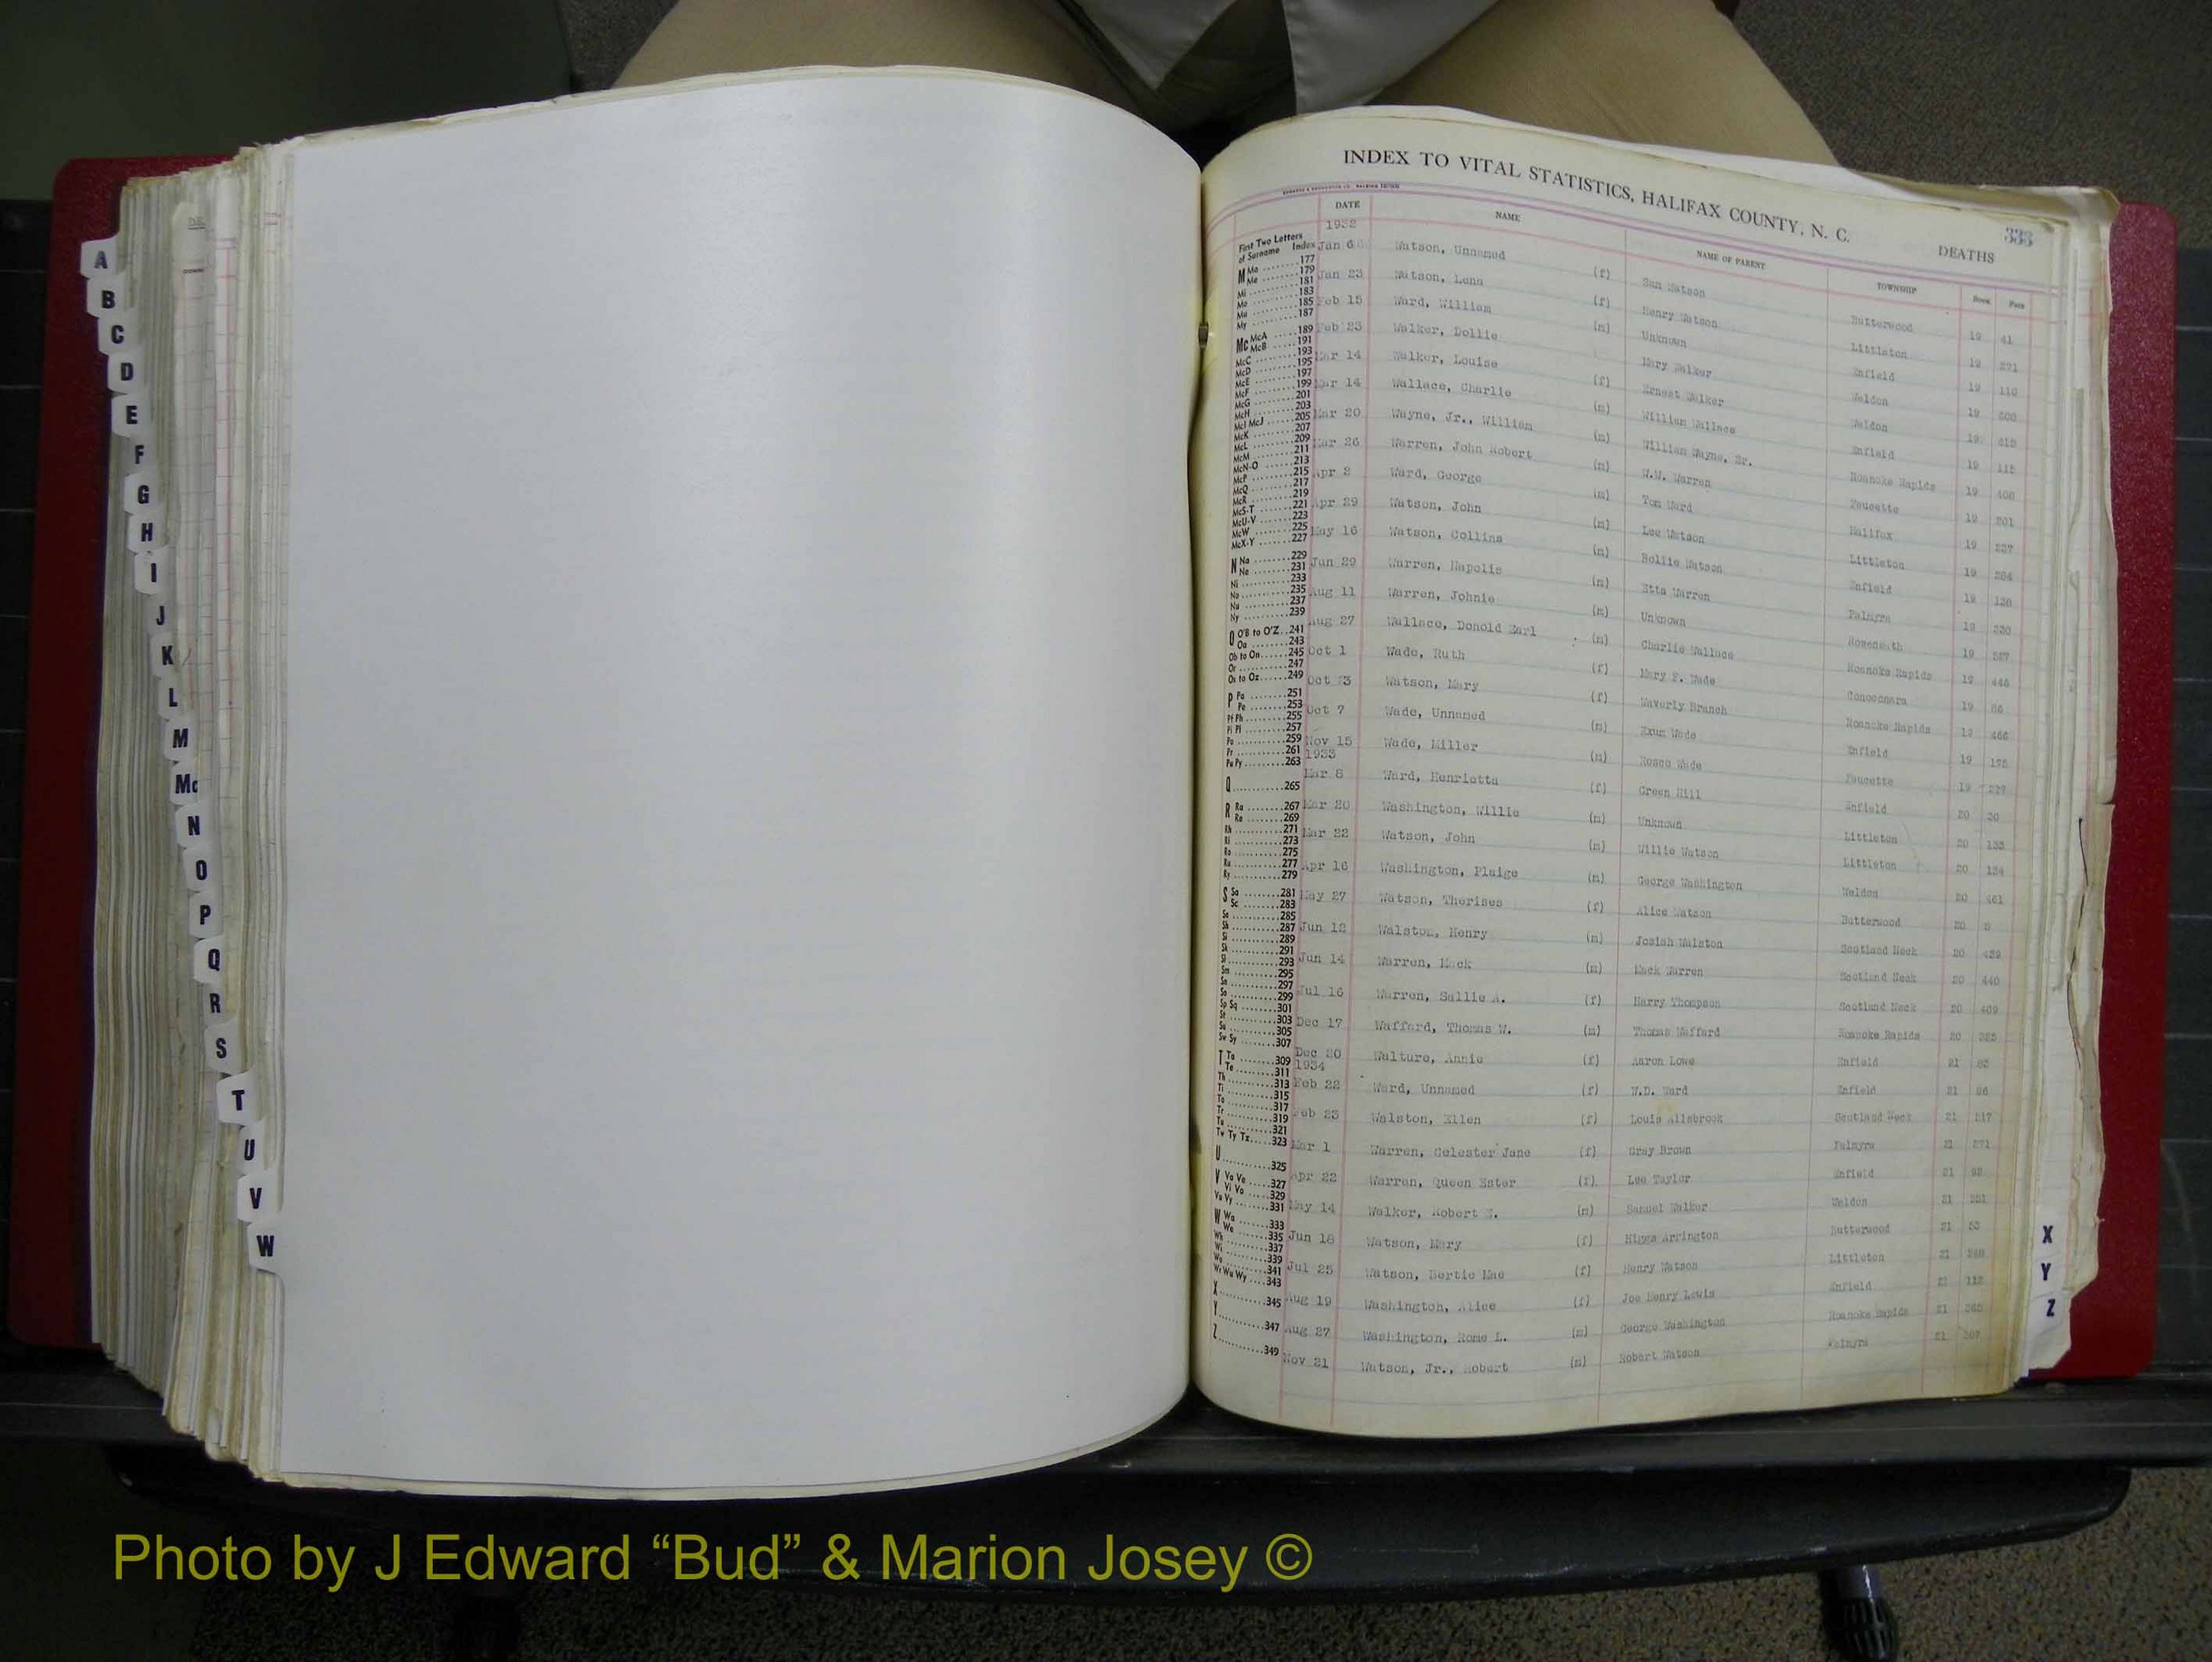 A
B
C
D
E
F
G
H
I
J
K
L
M
Mc
N
O
P
Q
R
S
T
U
V
W
INDEX TO VITAL STATISTICS, HALIFAX COUNTY, N. C.
DEATHS
333
DATE NAME NAME OF PARENT TOWNSHIP Book Page
First Two Letters of Surname Index
1932
Jan 6 Watson, Unnamed (f) Sam Watson Butterwood 19 41
Jan 23 Watson, Lena (f) Henry Watson Littleton 19 291
Feb 15 Ward, William (m) Unknown Enfield 19 110
Feb 23 Walker, Dollie Mary Walker Weldon 19
Mar 14 Walker, Louise (f) Ernest Walker Weldon 19
Mar 14 Wallace, Charlie (m) William Wallace Enfield 19 115
Mar 20 Wayne, Jr., William (m) William Wayne, Sr. Roanoke Rapids 19
Mar 26 Warren, John Robert (m) W.W. Warren Faucette 19
Apr 2 Ward, George (m) Tom Ward Halifax 19
Apr 29 Watson, John (m) Lee Watson Littleton 19
May 16 Watson, Collins (m) Rollie Watson Enfield 19
Jun 29 Warren, Napolis (m) Etta Warren Palmyra 19
Aug 11 Warren, Johnie (m) Unknown Roseneath 19
Aug 27 Wallace, Donold Earl (m) Charlie Wallace Roanoke Rapids 19
Oct 1 Wade, Ruth (f) Mary F. Wade Conoconara 19
Oct 23 Watson, Mary (f) Waverly Branch Roanoke Rapids 19
Oct 7 Wade, Unnamed (m) Exum Wade Enfield 19
Nov 15 Wade, Miller (m) Rosco Wade Faucette 19
1933
Mar 8 Ward, Henrietta (f) Green Hill Enfield 20 30
Mar 20 Washington, Willie (m) Unknown Littleton 20
Mar 22 Watson, John (m) Willie Watson Littleton 20 134
Apr 16 Washington, Plaige (m) George Washington Weldon 20
May 27 Watson, Therises (f) Alice Watson Butterwood 20
Jun 12 Walston, Henry (m) Josiah Walston Scotland Neck 20
Jun 14 Warren, Mack (m) Mack Warren Scotland Neck 20 440
Jul 16 Warren, Sallie A. (f) Harry Thompson Scotland Neck 20
Dec 17 Waffard, Thomas W. (m) Thomas Waffard Roanoke Rapids 20
Dec 20 Walture, Annie (f) Aaron Lowe Enfield 21
1934
Feb 22 Ward, Unnamed (f) W.D. Ward Enfield 21
Feb 23 Walston, Ellen (f) Louis Allsbrook Scotland Neck 21
Mar 1 Warren, Celester Jane (f) Gray Brown Palmyra 21
Apr 22 Warren, Queen Ester (f) Lee Taylor Enfield 21
May 14 Walker, Robert E. (m) Samuel Walker Weldon 21
Jun 18 Watson, Mary (f) Higgs Arrington Butterwood 21
Jul 25 Watson, Bertie Mae (f) Henry Watson Littleton 21
Aug 19 Washington, Alice (f) Joe Henry Lewis Enfield 21 112
Aug 27 Washington, Rome L. (m) George Washington Roanoke Rapids 21
Nov 21 Watson, Jr., Robert (m) Robert Watson Palmyra 21
M Ma ........177
Me ........179
Mi ........181
Mo ........183
Mu ........185
My ........187
Mc McA ....189
McB .....191
McC ........193
McD ........195
McE ........197
McF ........199
McG ........201
McH ........203
McI McJ .....205
McK ........207
McL ........209
McM ........211
McN-O ......213
McP ........215
McQ ........217
McR ........219
McS-T .......221
McU-V .......223
McW ........225
McX-Y .......227
N Na ........229
Ne ........231
Ni ........233
No ........235
Nu ........237
Ny ........239
O O'B to O'Z..241
Oa ........243
Ob to On......245
Or ........247
Os to Oz......249
P Pa ........251
Pe ........253
Pf Ph ........255
Pi Pl ........257
Po ........259
Pr ........261
Pu Py ........263
Q............265
R Ra ........267
Re ........269
Rh ........271
Ri ........273
Ro ........275
Ru ........277
Ry ........279
S Sa ........281
Sc ........283
Se ........285
Sh ........287
Si ........289
Sk ........291
Sl ........293
Sm ........295
Sn ........297
So ........299
Sp Sq ........301
St ........303
Su ........305
Sw Sy ........307
T Ta ........309
Te ........311
Th ........313
Ti ........315
To ........317
Tr ........319
Tu ........321
Tw Ty Tz.....323
U............325
V Va Ve .....327
Vi Vo .....329
Vu Vy .......331
W Wa ........333
We ........335
Wh ........337
Wi ........339
Wo ........341
Wr Wu Wy ....343
X............345
Y............347
Z............349
X
Y
Z
Photo by J Edward “Bud” & Marion Josey ©